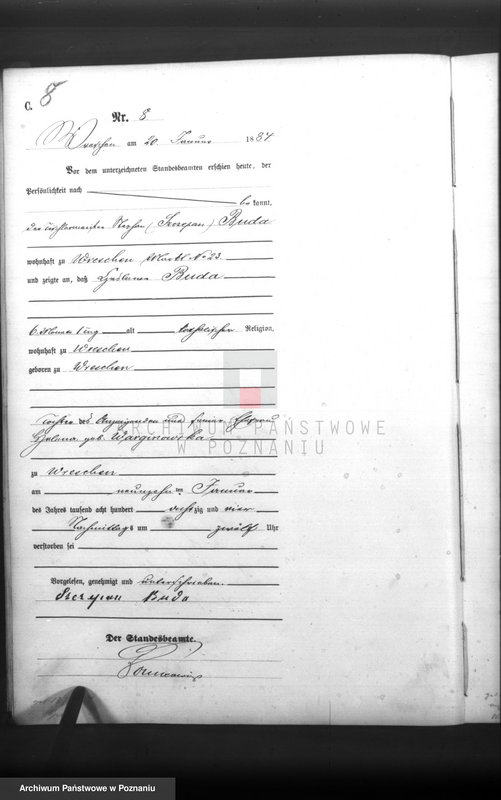 C. 8
Nr. 8
Wreschen am 20. Januar 1884
Vor dem unterzeichneten Standesbeamten erschien heute, der
Persönlichkeit nach
be kannt,
der Stephan (Szczepan) Buda
wohnhaft zu Wreschen Markt No 23.
und zeigte an, daß Buda
6 Monate 1 Tag alt katholischer Religion,
wohnhaft zu Wreschen
geboren zu Wreschen
Tochter des Anzeigenden und seiner Ehefrau
geb.
ARCHIWUM PAŃSTWOWE
W POZNANIU
zu Wreschen
am neunzehn ten Januar
des Jahres tausend acht hundert achtzig und vier
Nachmittags um zwölf Uhr
verstorben sei
Vorgelesen, genehmigt und unterschrieben.
Szczepan Buda
Der Standesbeamte.
Archiwum Państwowe w Poznaniu